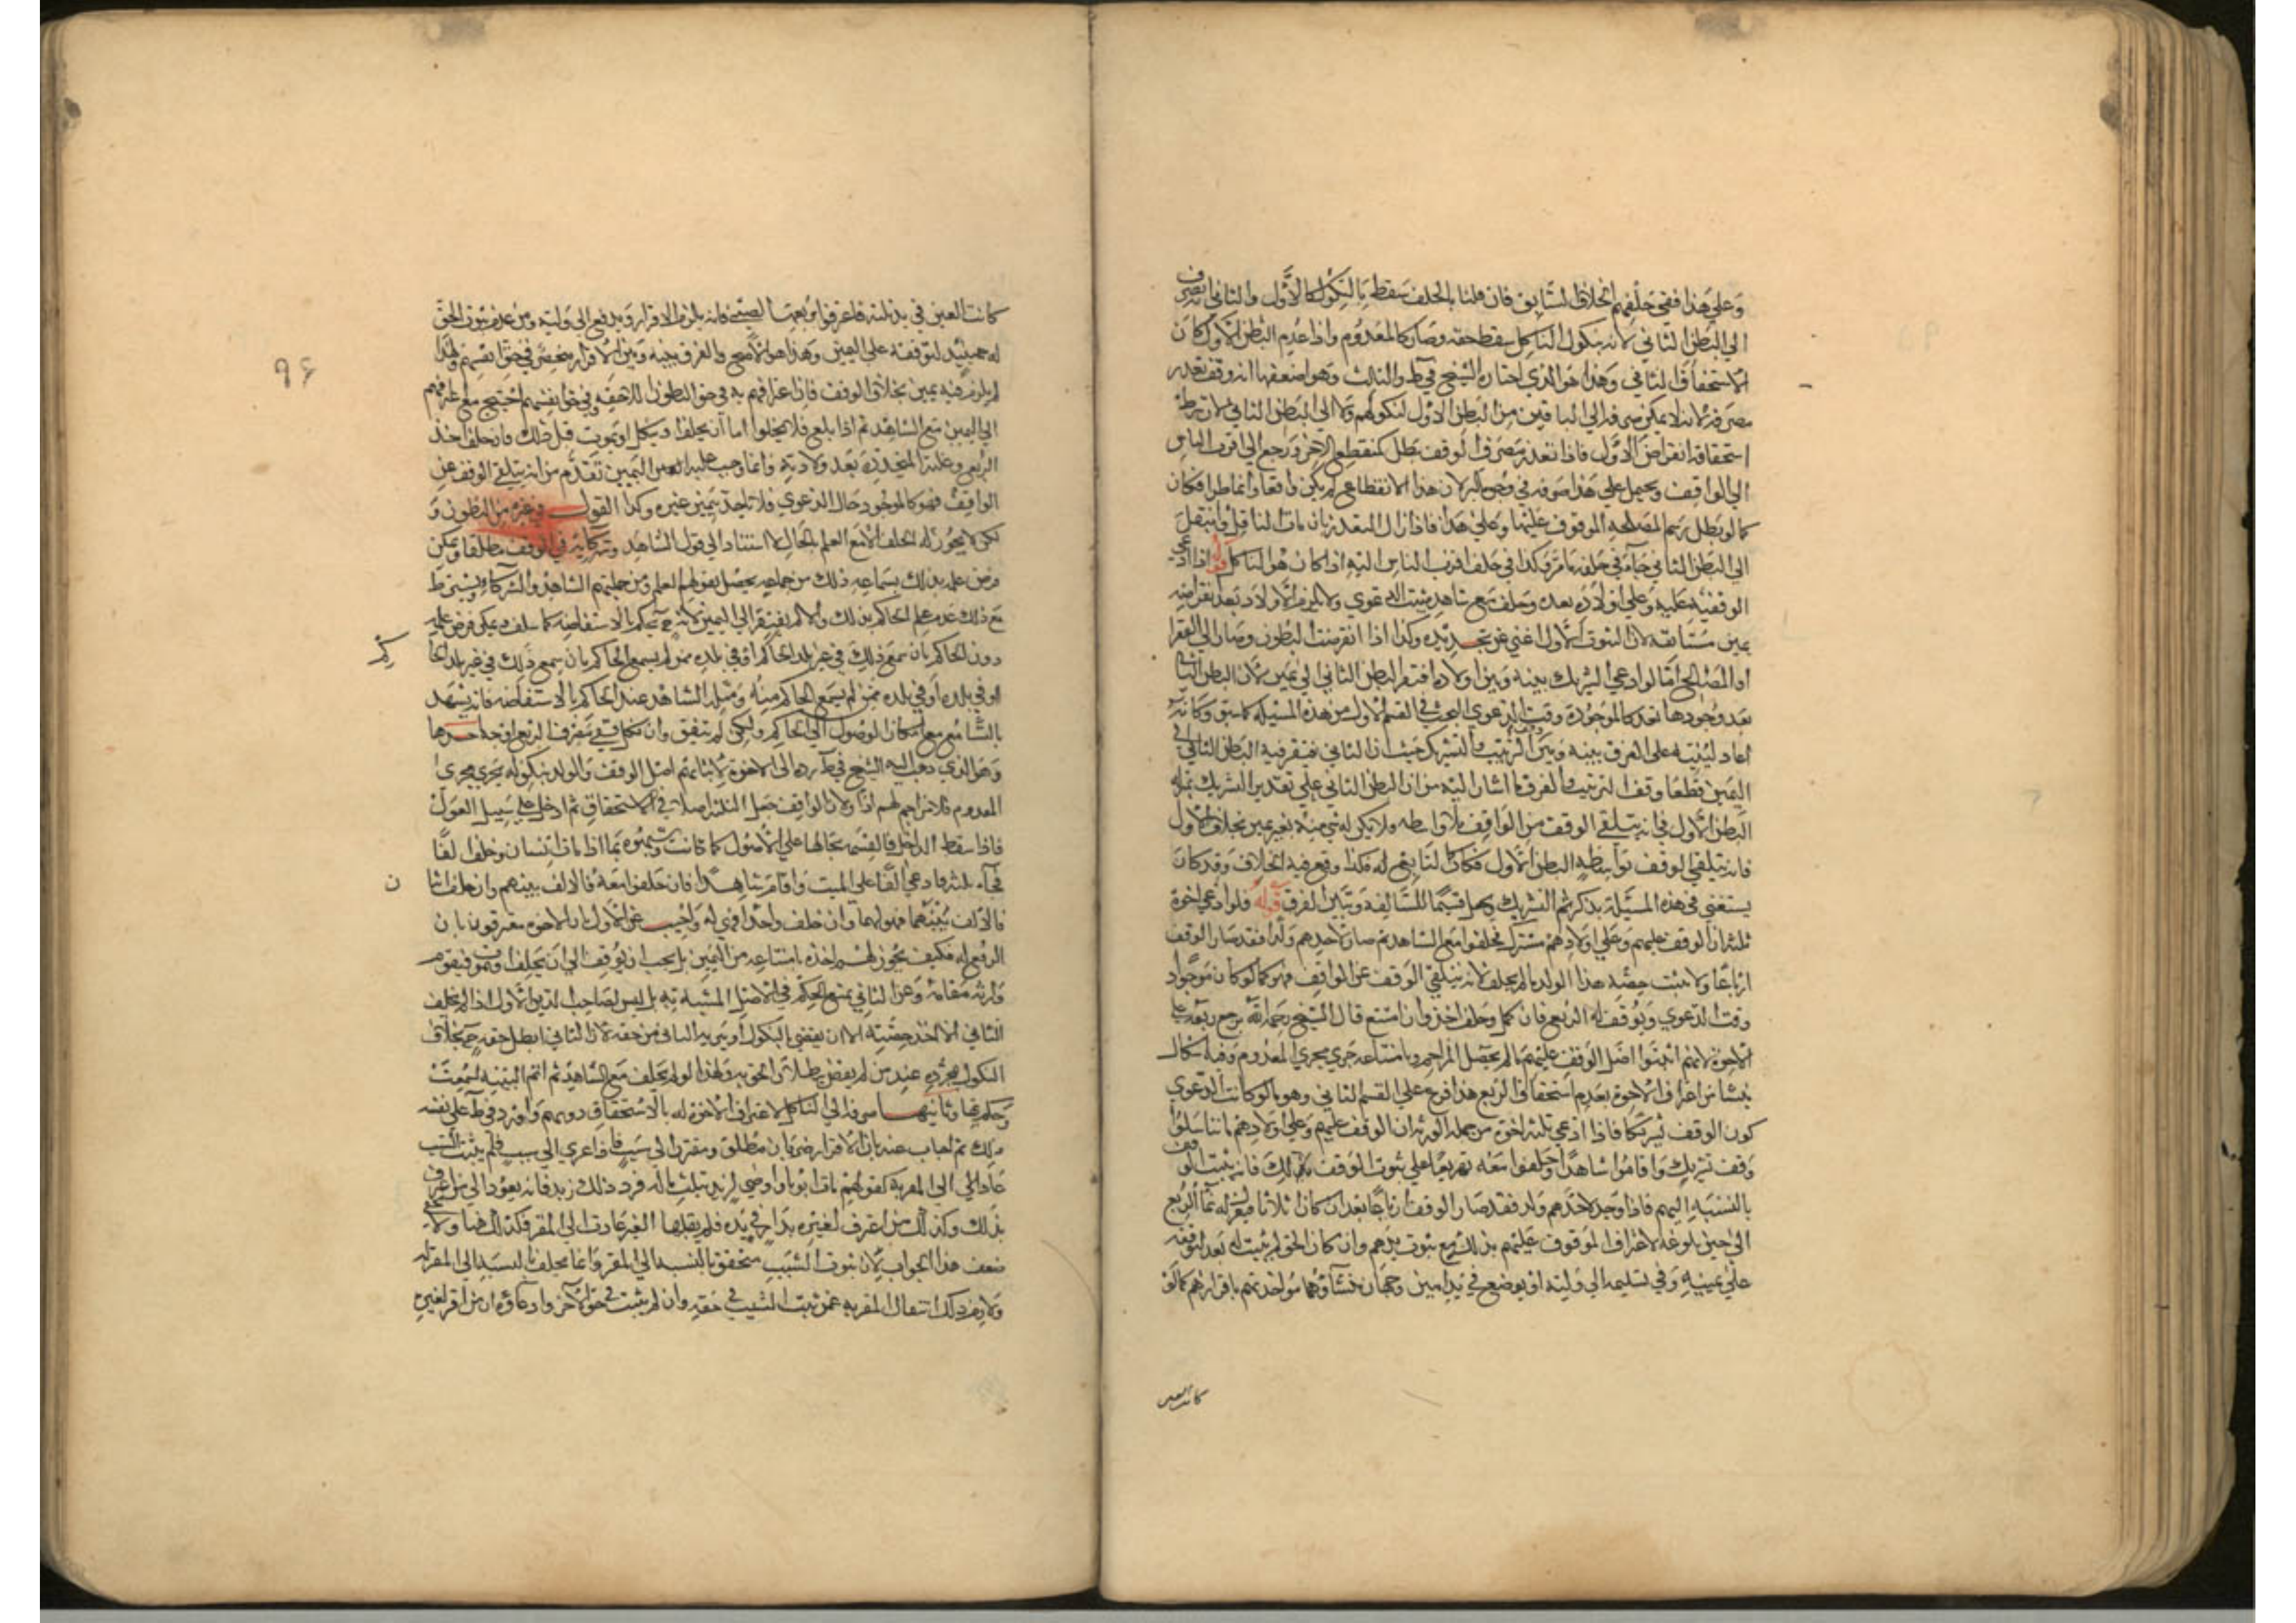 وعلي هذا ففي حلفهم الخلاف السابق فان قلنا بالحلف سقط بالنكول كالاول والثاني انه يصرف
الي البطن الثاني لانه بنكول الناكل سقط حقه وصار كالمعدوم واذا عدم البطن الاول كان
الاستحقاق للثاني وهذا هو الذي اختاره الشيخ في ط والثالث وهو اضعفها انه وقف تعذر
مصرفه لانه لا يمكن صرفه الي الباقين من البطن الاول لنكولهم ولا الي البطن الثاني لان شرط
استحقاقه انقراض الاول فاذا تعذر مصرف الوقف بطل كمنقطع الاخر ورجع الي اقرب الناس
الي الواقف ويحتمل علي هذا صرفه في وجوه البر لان هذا الانقطاع لم يكن واقعا وانما طرا فكان
كما لو بطل رسم المصلحه الموقوف عليها وعلي هذا فاذا زال التعذر بان مات الناكل فينتقل
الي البطن الثاني جاء في حلفه ما مر وكذا في حلف اقرب الناس اليه اذا كان هو الناكل قوله اذا ادعي
الوقفية عليه وعلي اولاده بعده وحلف مع شاهد ثبتت الدعوي ولا يلزم الاولاد بعد انقراضه
يمين مستانفة لان الثبوت الاول اغني عن تجديده وكذا اذا انقرضت البطون وصار الي الفقرا
او المصالح اما لو ادعي التشريك بينه وبين اولاده افتقر البطن الثاني الي يمين لان البطن الثاني
بعد وجودها تعد كالموجودة وقت الدعوي البحث في القسم الاول من هذه المسيله كما سبق وكانه
اعاد ليبنه علي الفرق بينه وبين الترتيب والتشريك حيث ان الثاني يفتقر فيه البطن الثاني الي
اليمين قطعا وقف الترتيب والفرق ما اشار اليه من ان البطن الثاني علي تقدير التشريك بمنزله
البطن الاول في انه يتلقي الوقف من الواقف بلا واسطه ولا يكون له شي منه بغير يمين بخلاف الاول
فانه يتلقي الوقف بواسطة البطن الاول فكان تابعا له فلذا وقع فيه الخلاف وقد كان
يستغني في هذه المسئلة بذكر ثم التشريك ويجعل قسما للسالفة ويتبين الفرق قوله فلو ادعي اخوة
ثلثه ان الوقف عليهم وعلي اولادهم مشترك فحلفوا مع الشاهد ثم صار لاحدهم ولد فقد صار الوقف
ارباعا ولا تثبت حصة هذا الولد ما لم يحلف لانه يتلقي الوقف عن الواقف فهو كما لو كان موجودا
وقت الدعوي ويوقف له الربع فان كمل وحلف اخذ وان امتنع قال الشيخ رحمه الله يرجع ربعه علي
الاخوة لانهم اثبتوا اصل الوقف عليهم ما لم يحصل المزاحم وبامتناعه جري مجري المعدوم وفيه اشكال
ينشا من اعتراف الاخوة بعدم استحقاق الربع هذا فرع علي القسم الثاني وهو ما لو كانت الدعوي
كون الوقف تشريكا فاذا ادعي ثلثه اخوة من جملة الورثه ان الوقف عليهم وعلي اولادهم ما تناسلوا
وقف تشريك واقاموا شاهدا وحلفوا معه تفريعا علي ثبوت الوقف بذلك فانه يثبت الوقف
بالنسبة اليهم فاذا وجد لاحدهم ولد فقد صار الوقف ارباعا بعد ان كان اثلاثا فيعزل له نما الربع
الي حين بلوغه لاعتراف الموقوف عليهم بذلك مع ثبوت يدهم وان كان الحق لم يثبت له بعد لتوقفه
علي يمينه وفي تسليمه الي وليه او يوضع في يد امين وجهان منشاوهما مواخذتهم باقرارهم كما لو
كانت العين
كانت العين في يد ثلثة فاعترفوا برُبعها لصبي فانه يلزم الاقرار ويدفع الي وليه ومن عدم ثبوت الحق
له حينئذ لتوقفه علي اليمين وهذا هو الاصح والفرق بينه وبين الاقرار محض في حق انفسهم ولهذا
لم يلزم فيه يمين بخلاف الوقف فان اعترافهم به في حق البطون اللاحقه وفي حق انفسهم احتيج مع اعترافهم
الي اليمين مع الشاهد ثم اذا بلغ فلا يخلوا اما ان يحلف او ينكل او يموت قبل ذلك فان حلف اخذ
الربع وغلته المتجددة بعد ولادته وانما وجب عليه اليمين تقدم من انه يتلقي الوقف عن
الواقف فهو كالموجود حال الدعوي فلا تجدي يمين غيره وكذا القول في غيره من البطون و
لكن لا يجوز له الحلف الا مع العلم بالحال لا استنادا الي قول الشاهد وشركايه في الوقف مطلقا ويمكن
فرض علمه بذلك بسماعه ذلك من جماعه يحصل بقولهم العلم ومن جملتهم الشاهد والشركاء ويشترط
مع ذلك عدم علم الحاكم بذلك والا لم يفتقر الي اليمين لانه ح يحكم بالاستفاضه كما سلف ويمكن فرض علمه
دون الحاكم بان سمع ذلك في غير بلد الحاكم او في بلده ممن لم يسمع الحاكم بان سمع ذلك في غير بلد الحاكم
او في بلده او في بلده ممن لم يسمع الحاكم منه ومثله الشاهد عند الحاكم بالاستفاضه فانه يشهد
بالشايع مع امكان الوصول الي الحاكم ولكن لم يتفق وان نكل ففي مصرف الربع اوجه احدها
وهو الذي ذهب اليه الشيخ في ط رده الي الاخوة لاثباتهم اصل الوقف والولد بنكوله يجري مجري
المعدوم فلا مزاحم لهم اذا ولان الواقف جعل الثلثه اصلا في الاستحقاق ثم ادخل علي سبيل العول
فاذا سقط الداخل فالقسمة بحالها علي الاصول كما كانت ويشبهوه بما اذا مات انسان وخلف الفا
فجاء ثلثه فادعي الفا علي الميت واقام شاهدا فان حلفوا معه فالالف بينهم وان حلف اثنان
فالالف بينهما فهو لهما وان حلف واحدا فهي له واجيب عن الاول بان الاخوة معترفون بان
الربع له فكيف يجوز لهم اخذه بامتناعه من اليمين بل يجب ان يوقف الي ان يحلف او يموت فيقوم
وارثه مقامه وعن الثاني بمنع الحكم في الاصل المشبه به بل ليس لصاحب الدين الاول اذا لم يحلف
الثاني الا اخذ حصته الا ان يقضي بالنكول او يبريه الثاني من حقه لان الثاني ابطل حقه ح بخلاف
النكول بمجرده عند من لم يقض ببطلان الحق به ولهذا لو لم يحلف مع الشاهد ثم اتم البينه لسمعت
وحكم بها وثانيها صرفه الي الناكل لاعتراف الاخوة له بالاستحقاق دونهم واورد في ط علي نفسه
ذلك ثم اجاب عنه بان الاقرار ضربان مطلق ومعزو الي سبب فاذا عزي الي سبب فلم يثبت السبب
عاد الي المقر به كقولهم مات ابونا واوصي لزيد بثلث ماله فرد ذلك زيد فانه يعود الي من اعترف
بذلك وكذلك من اعترف لغيره بدار في يده فلم يقبلها الغير عادت الي المقر فكذلك هنا ولا يخفي
ضعف هذا الجواب لان ثبوت السبب متحقق بالنسبه الي المقر وانما تخلف بالنسبه الي المقر له
ولا يلزم ذلك انتقال المقر به عمن ثبت السبب في حقه وان لم يثبت في حق الآخر وادعاؤه ان من اقر لغيره